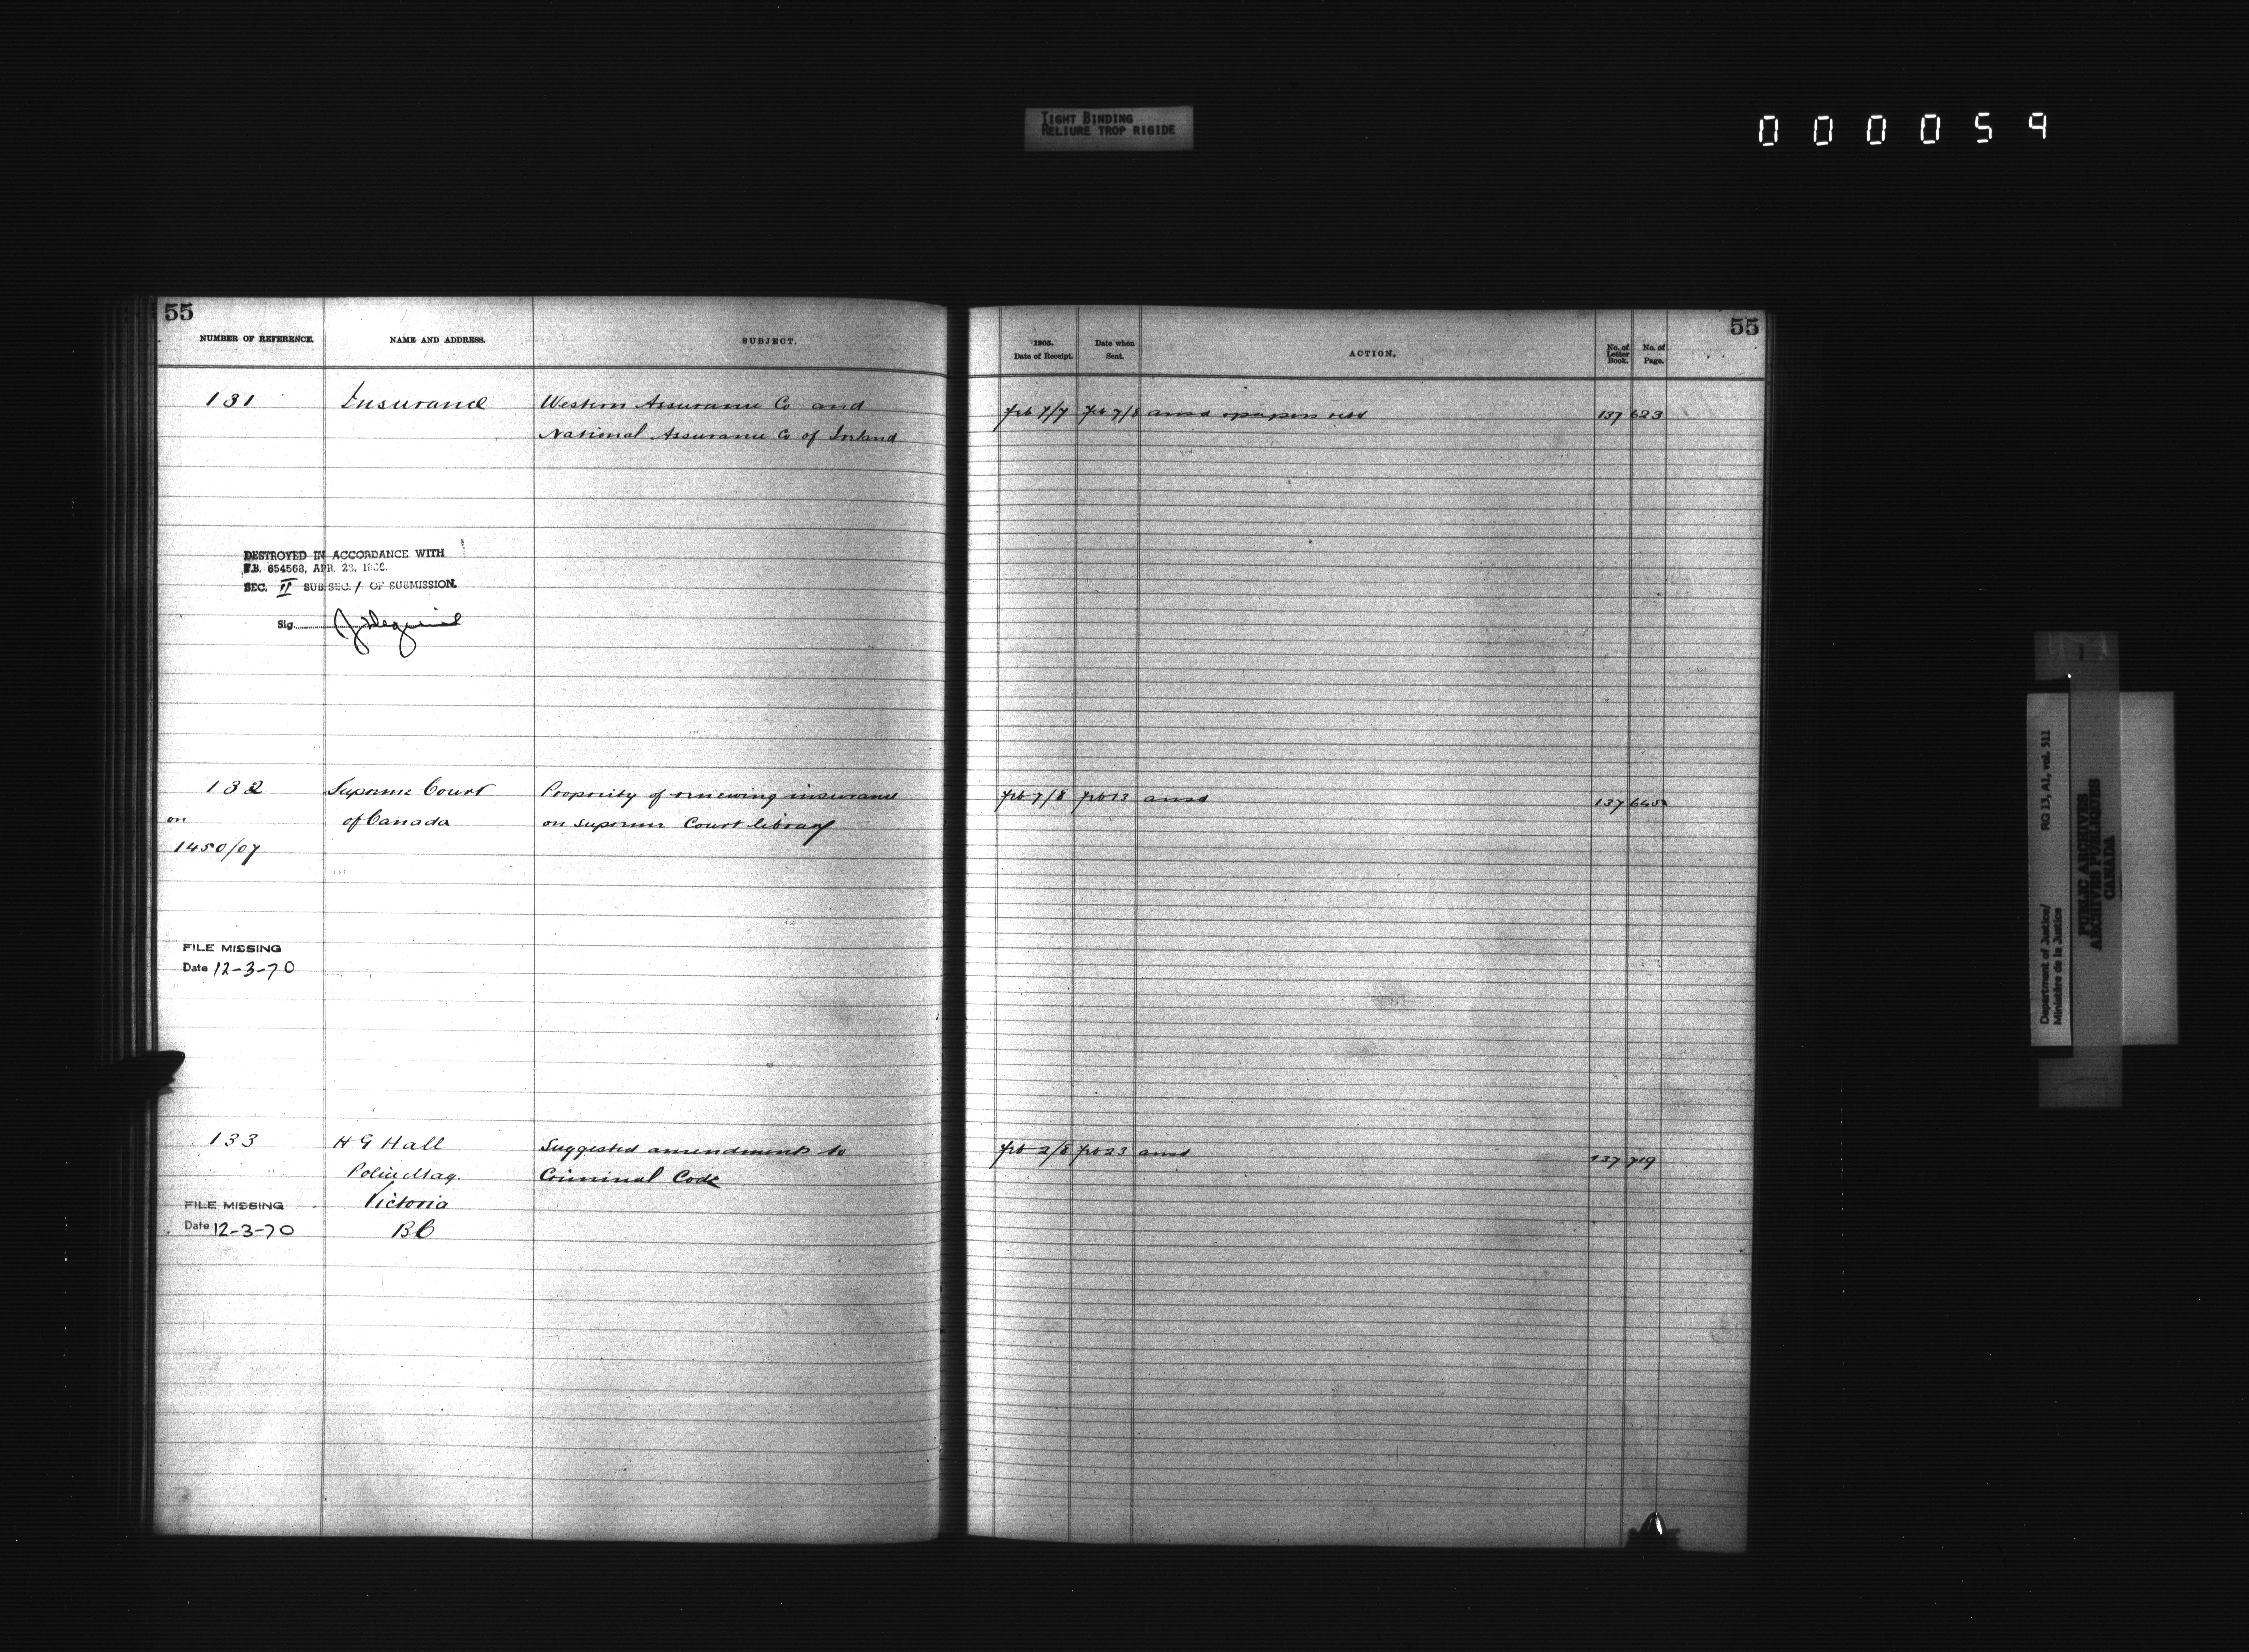 TIGHT BINDING
RELIURE TROP RIGIDE
000059
55
NUMBER OF REFERENCE.
NAME AND ADDRESS.
SUBJECT.
131
Insurance
Western Assurance Co and
National Assurance Co of Ireland
DESTROYED IN ACCORDANCE WITH
T.B. 654568, APR. 28,
SEC. II SUB.SEC. 1 OF SUBMISSION.
Sig.
132
Supreme Court
Propriety of renewing insurance
on
of Canada
on Supreme Court library
1450/07
FILE MISSING
Date 12-3-70
133
H G Hall
Suggested amendments to
Police Mag.
Criminal Code
FILE MISSING
Victoria
Date 12-3-70
B C
55
1905.
Date of Receipt.
Date when
Sent.
ACTION.
No. of
Letter
Book.
No. of
Page.
Feb 7/7
Feb 7/8
ansd papers retd
137
623
Feb 7/8
Feb 13
ansd
137
Feb 2/8
Feb 23
ansd
137
719
Department of Justice/
Ministère de la Justice
RG 13, A1, vol. 511
PUBLIC ARCHIVES
ARCHIVES PUBLIQUES
CANADA